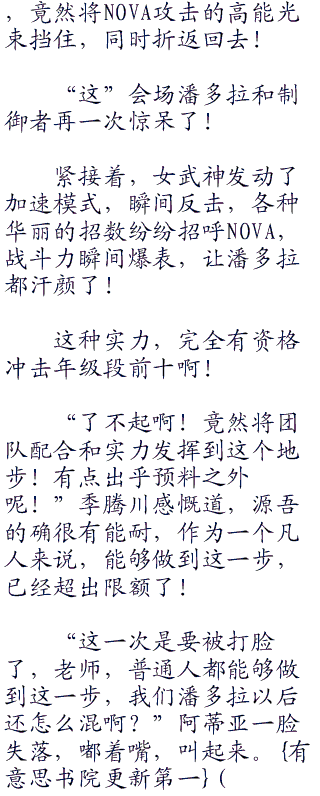 ，竟然将NOVA攻击的高能光
束挡住，同时折返回去！
“这”会场潘多拉和制
御者再一次惊呆了！
紧接着，女武神发动了
加速模式，瞬间反击，各种
华丽的招数纷纷招呼NOVA，
战斗力瞬间爆表，让潘多拉
都汗颜了！
这种实力，完全有资格
冲击年级段前十啊！
“了不起啊！竟然将团
队配合和实力发挥到这个地
步！有点出乎预料之外
呢！”季腾川感慨道，源吾
的确很有能耐，作为一个凡
人来说，能够做到这一步，
已经超出限额了！
“这一次是要被打脸
了，老师，普通人都能够做
到这一步，我们潘多拉以后
还怎么混啊？”阿蒂亚一脸
失落，嘟着嘴，叫起来。{有
意思书院更新第一}（